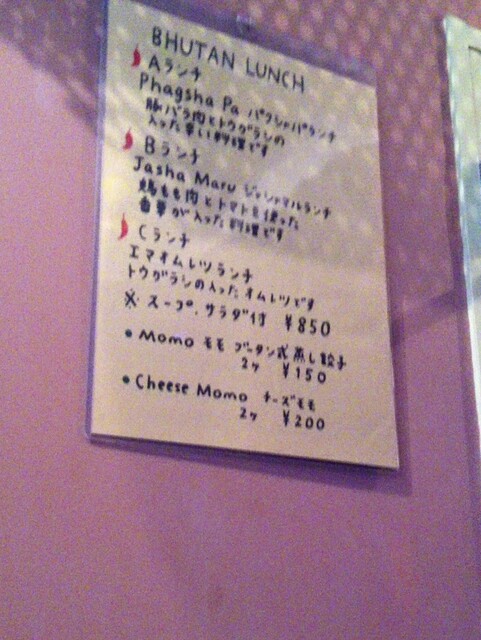 BHUTAN LUNCH
Aランチ
Phagsha Pa パクシャパランチ
豚バラ肉とトウガラシの
入った辛い料理です
Bランチ
Jasha Maru ジャシャマルランチ
鶏もも肉とトマトを使った
香草が入った料理です
Cランチ
エマオムレツランチ
トウガラシの入ったオムレツです
※ スープ、サラダ付 ¥850
• Momo モモ ブータン式蒸し餃子
2ケ ¥150
• Cheese Momo チーズモモ
2ケ ¥200